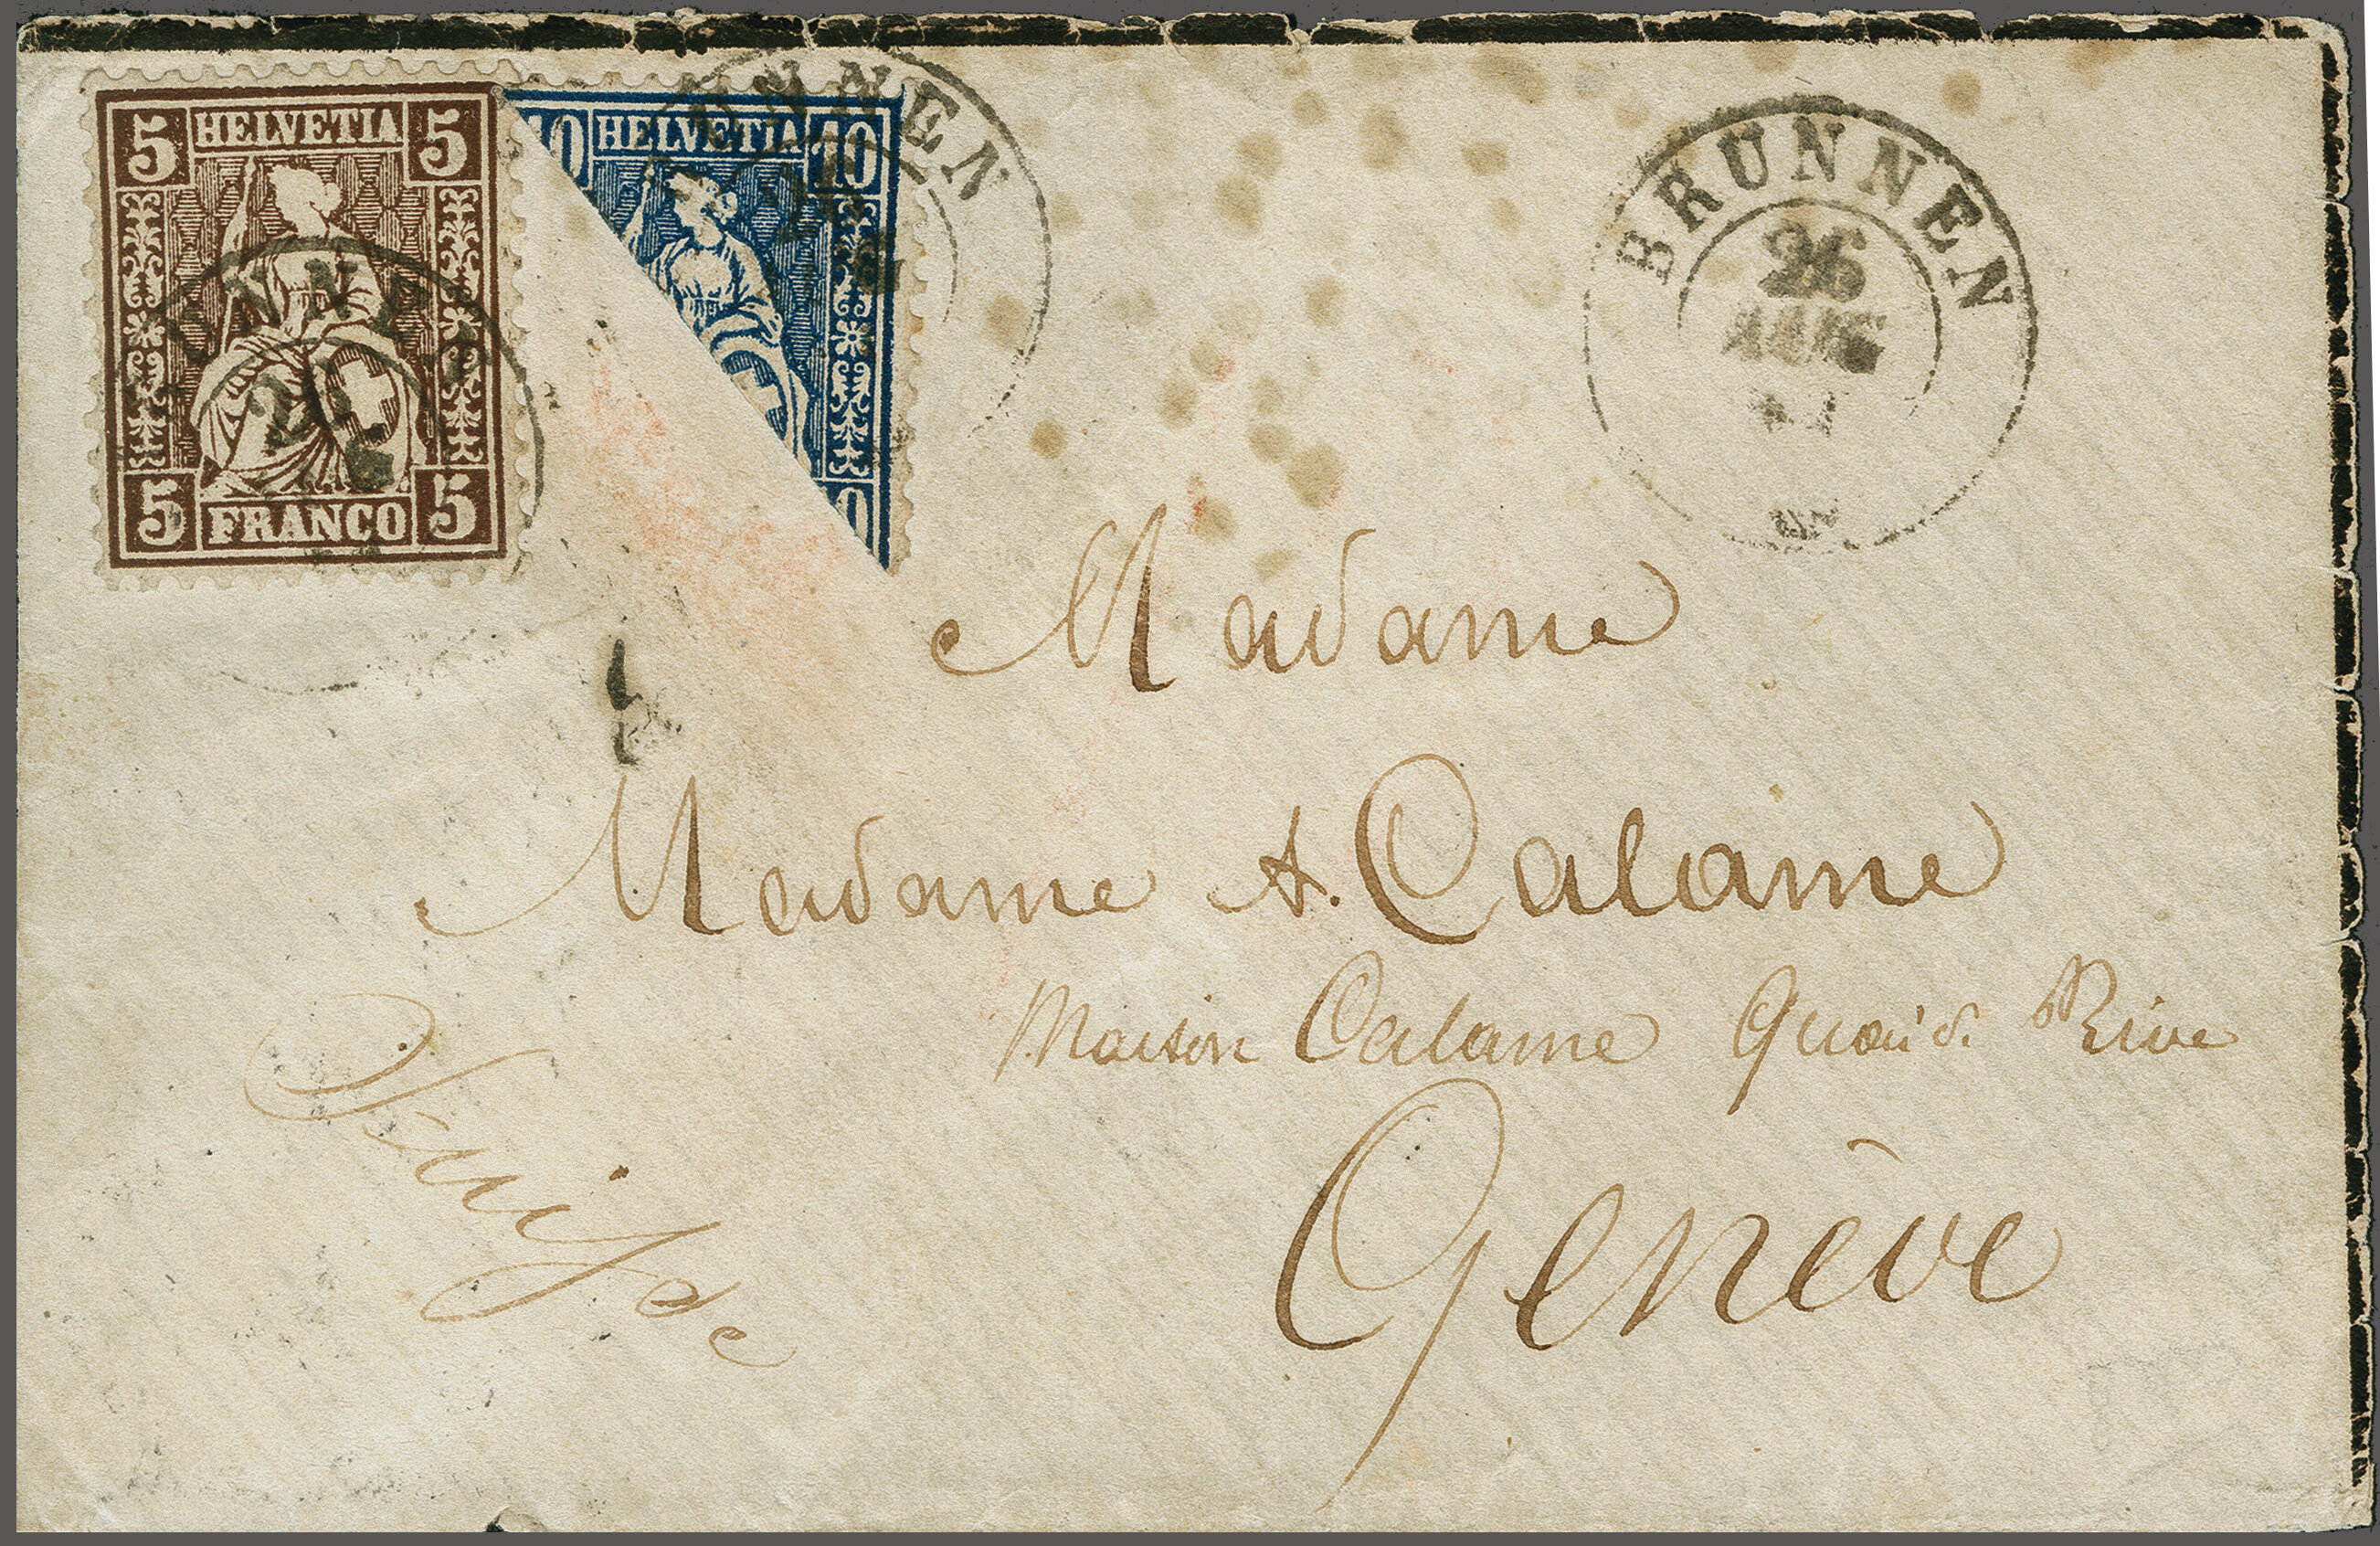 5 HELVETIA 5
5 FRANCO 5
10 HELVETIA 10
0
UNNEN
BRUNNEN
26
AUG
Madame
Madame A. Calame
Maison Calame Quai d. Rive
Genève
Suisse